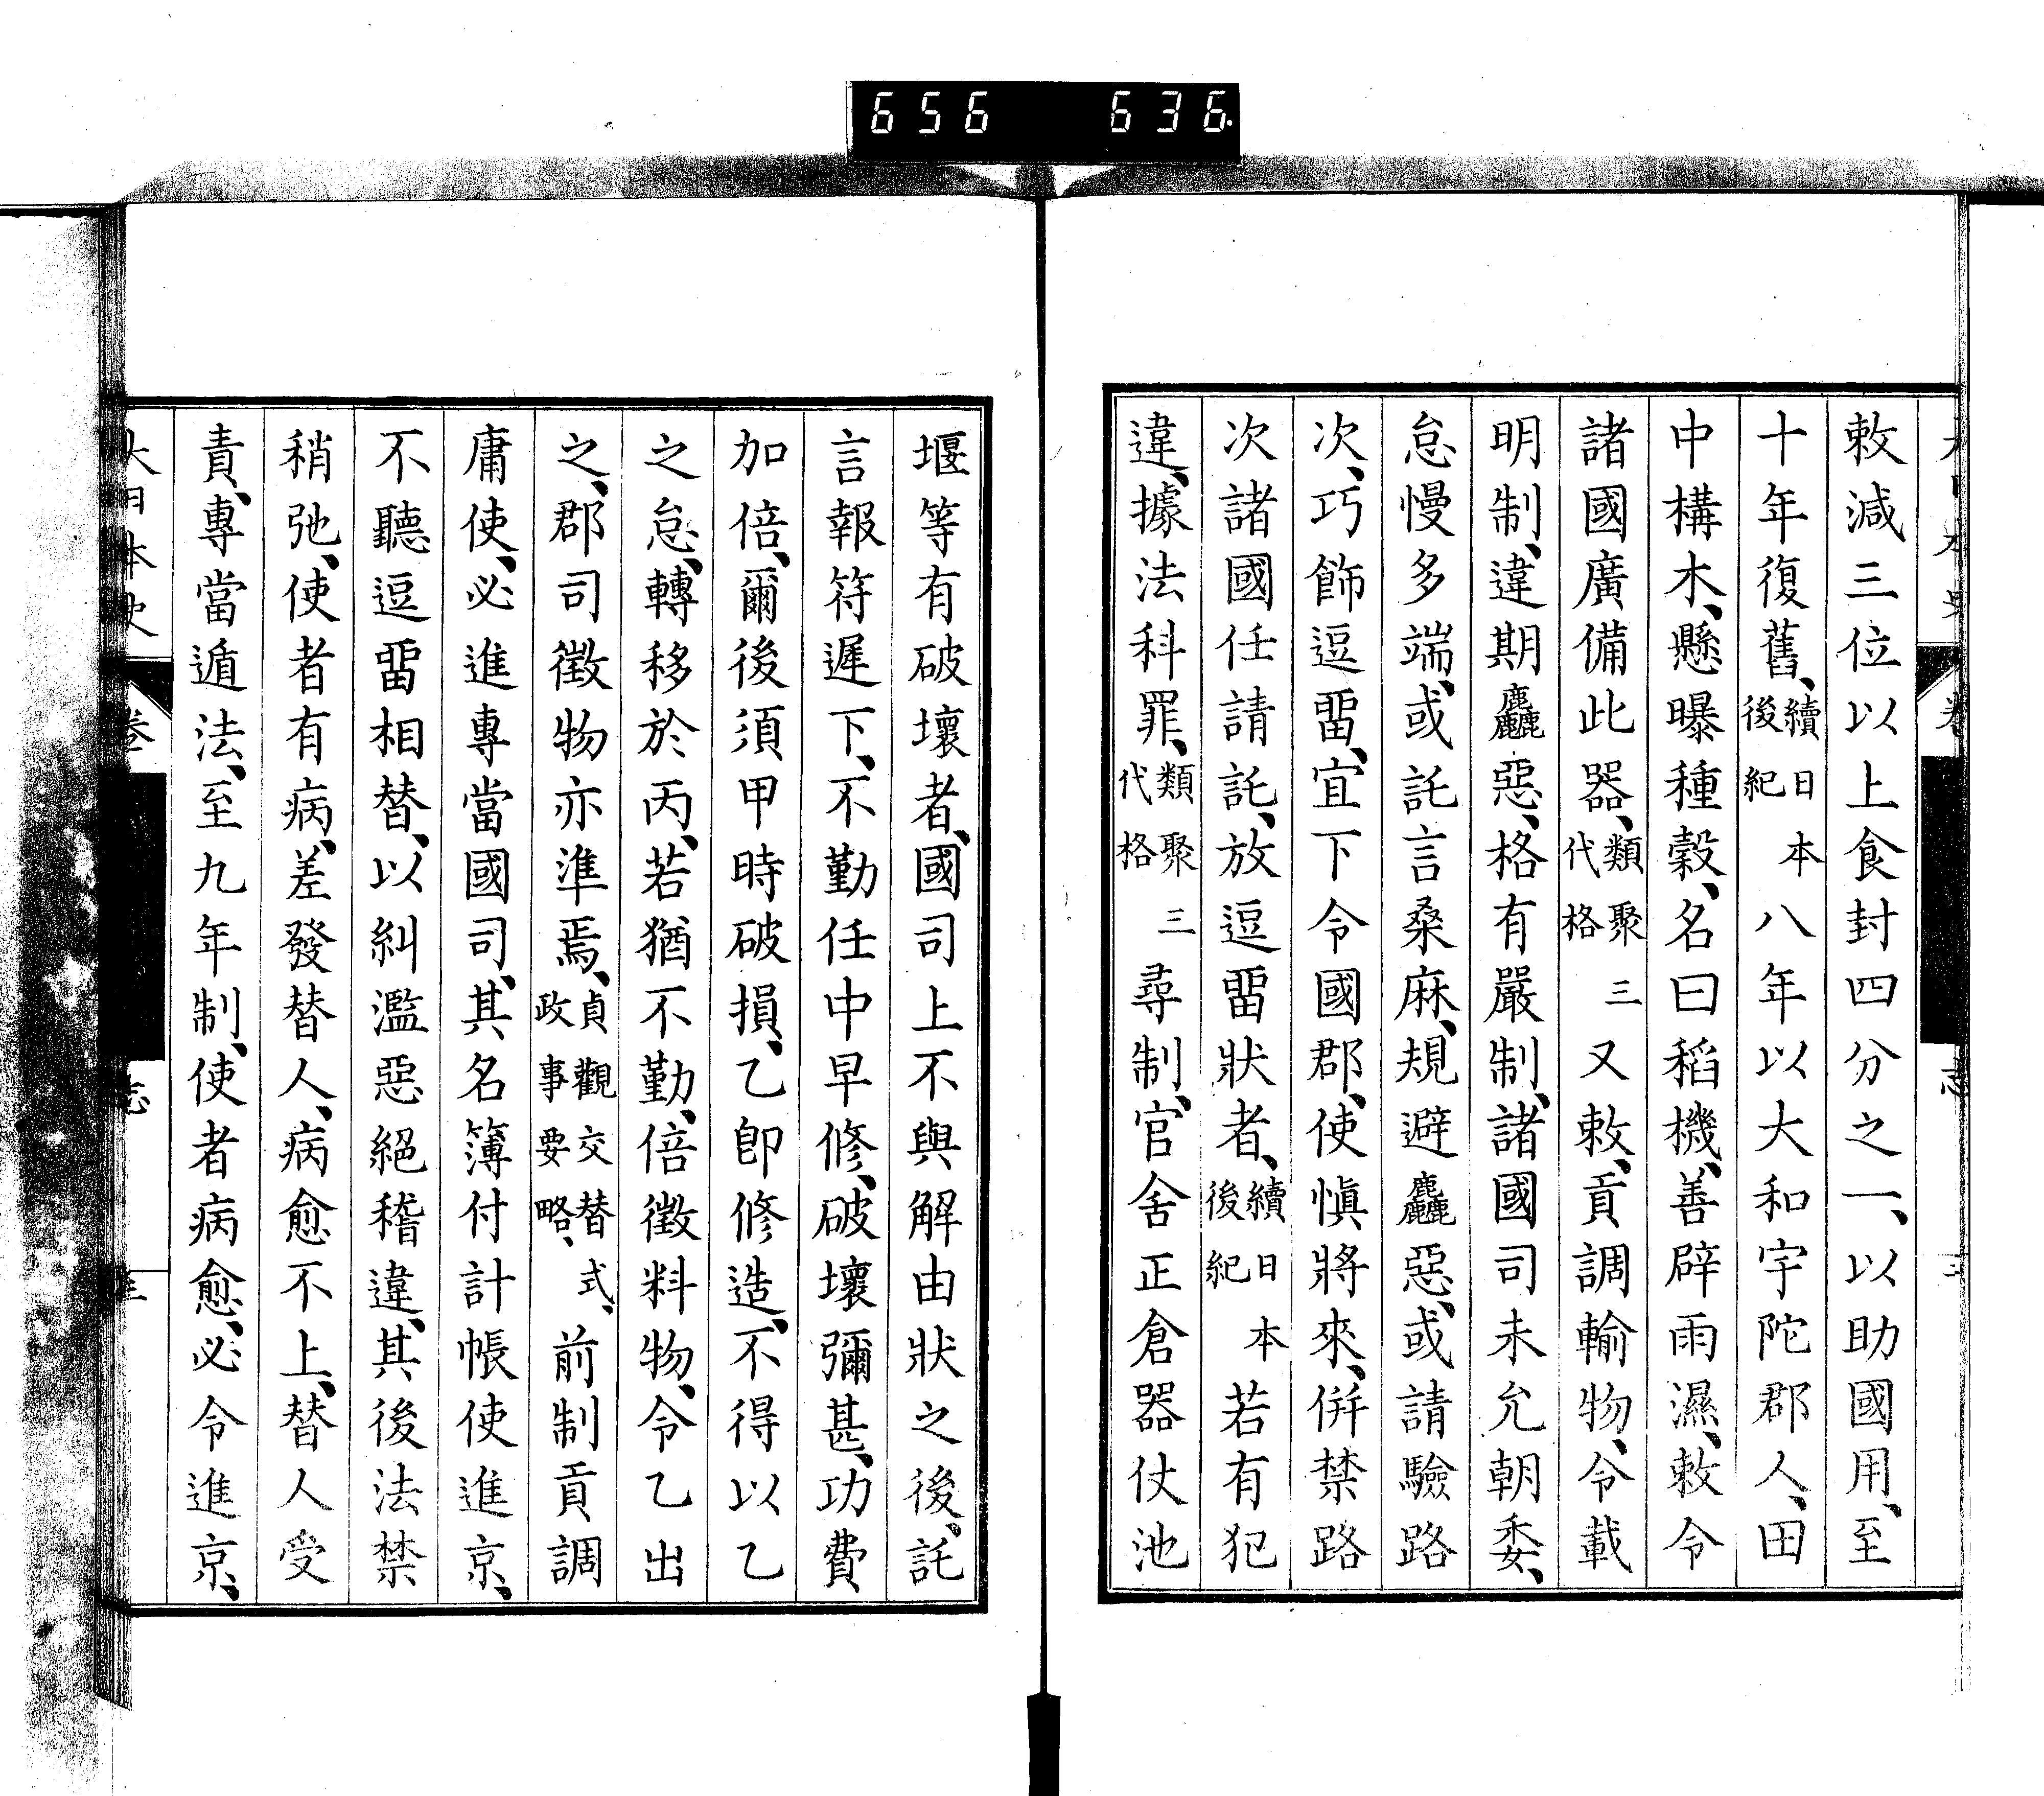 656 636
敕減三位以上食封四分之一、以助國用、至
十年復舊、續日本後紀八年以大和宇陀郡人、田
中構木、懸曝種穀、名曰稻機、善辟雨濕、敕令
諸國廣備此器、類聚三代格又敕、貢調輸物、令載
明制、違期麤惡、格有嚴制、諸國司未允朝委、
怠慢多端、或託言桑麻、規避麤惡、或請驗路
次、巧飾逗畱、宜下令國郡、使愼將來、併禁路
次諸國任請託、放逗畱狀者、續日本後紀若有犯
違、據法科罪、類聚三代格尋制、官舍正倉器仗池
堰等有破壞者、國司上不與解由狀之後、託
言報符遲下、不勤任中早修、破壞彌甚、功費
加倍、爾後須甲時破損、乙卽修造、不得以乙
之怠、轉移於丙、若猶不勤、倍徵料物、令乙出
之、郡司徵物亦準焉、貞觀交替式、政事要略、前制貢調
庸使、必進專當國司、其名簿付計帳使進京、
不聽逗畱相替、以糾濫惡絕稽違、其後法禁
稍弛、使者有病、差發替人、病愈不上、替人受
責、專當遁法、至九年制、使者病愈、必令進京、
大日本史 卷 志